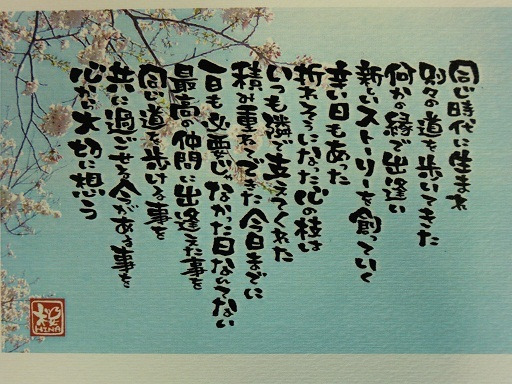 同じ時代に生まれ
別々の道を歩いてきた
何かの縁で出逢い
新しいストーリーを創っていく
辛い日もあった
折れそうになった心の枝は
いつも隣で支えてくれた
積み重ねてできた今日までに
一日も必要じゃなかった日なんてない
最高の仲間に出逢えた事を
同じ道を歩ける事を
共に過ごせる今がある事を
心から大切に想う
桜
HINA